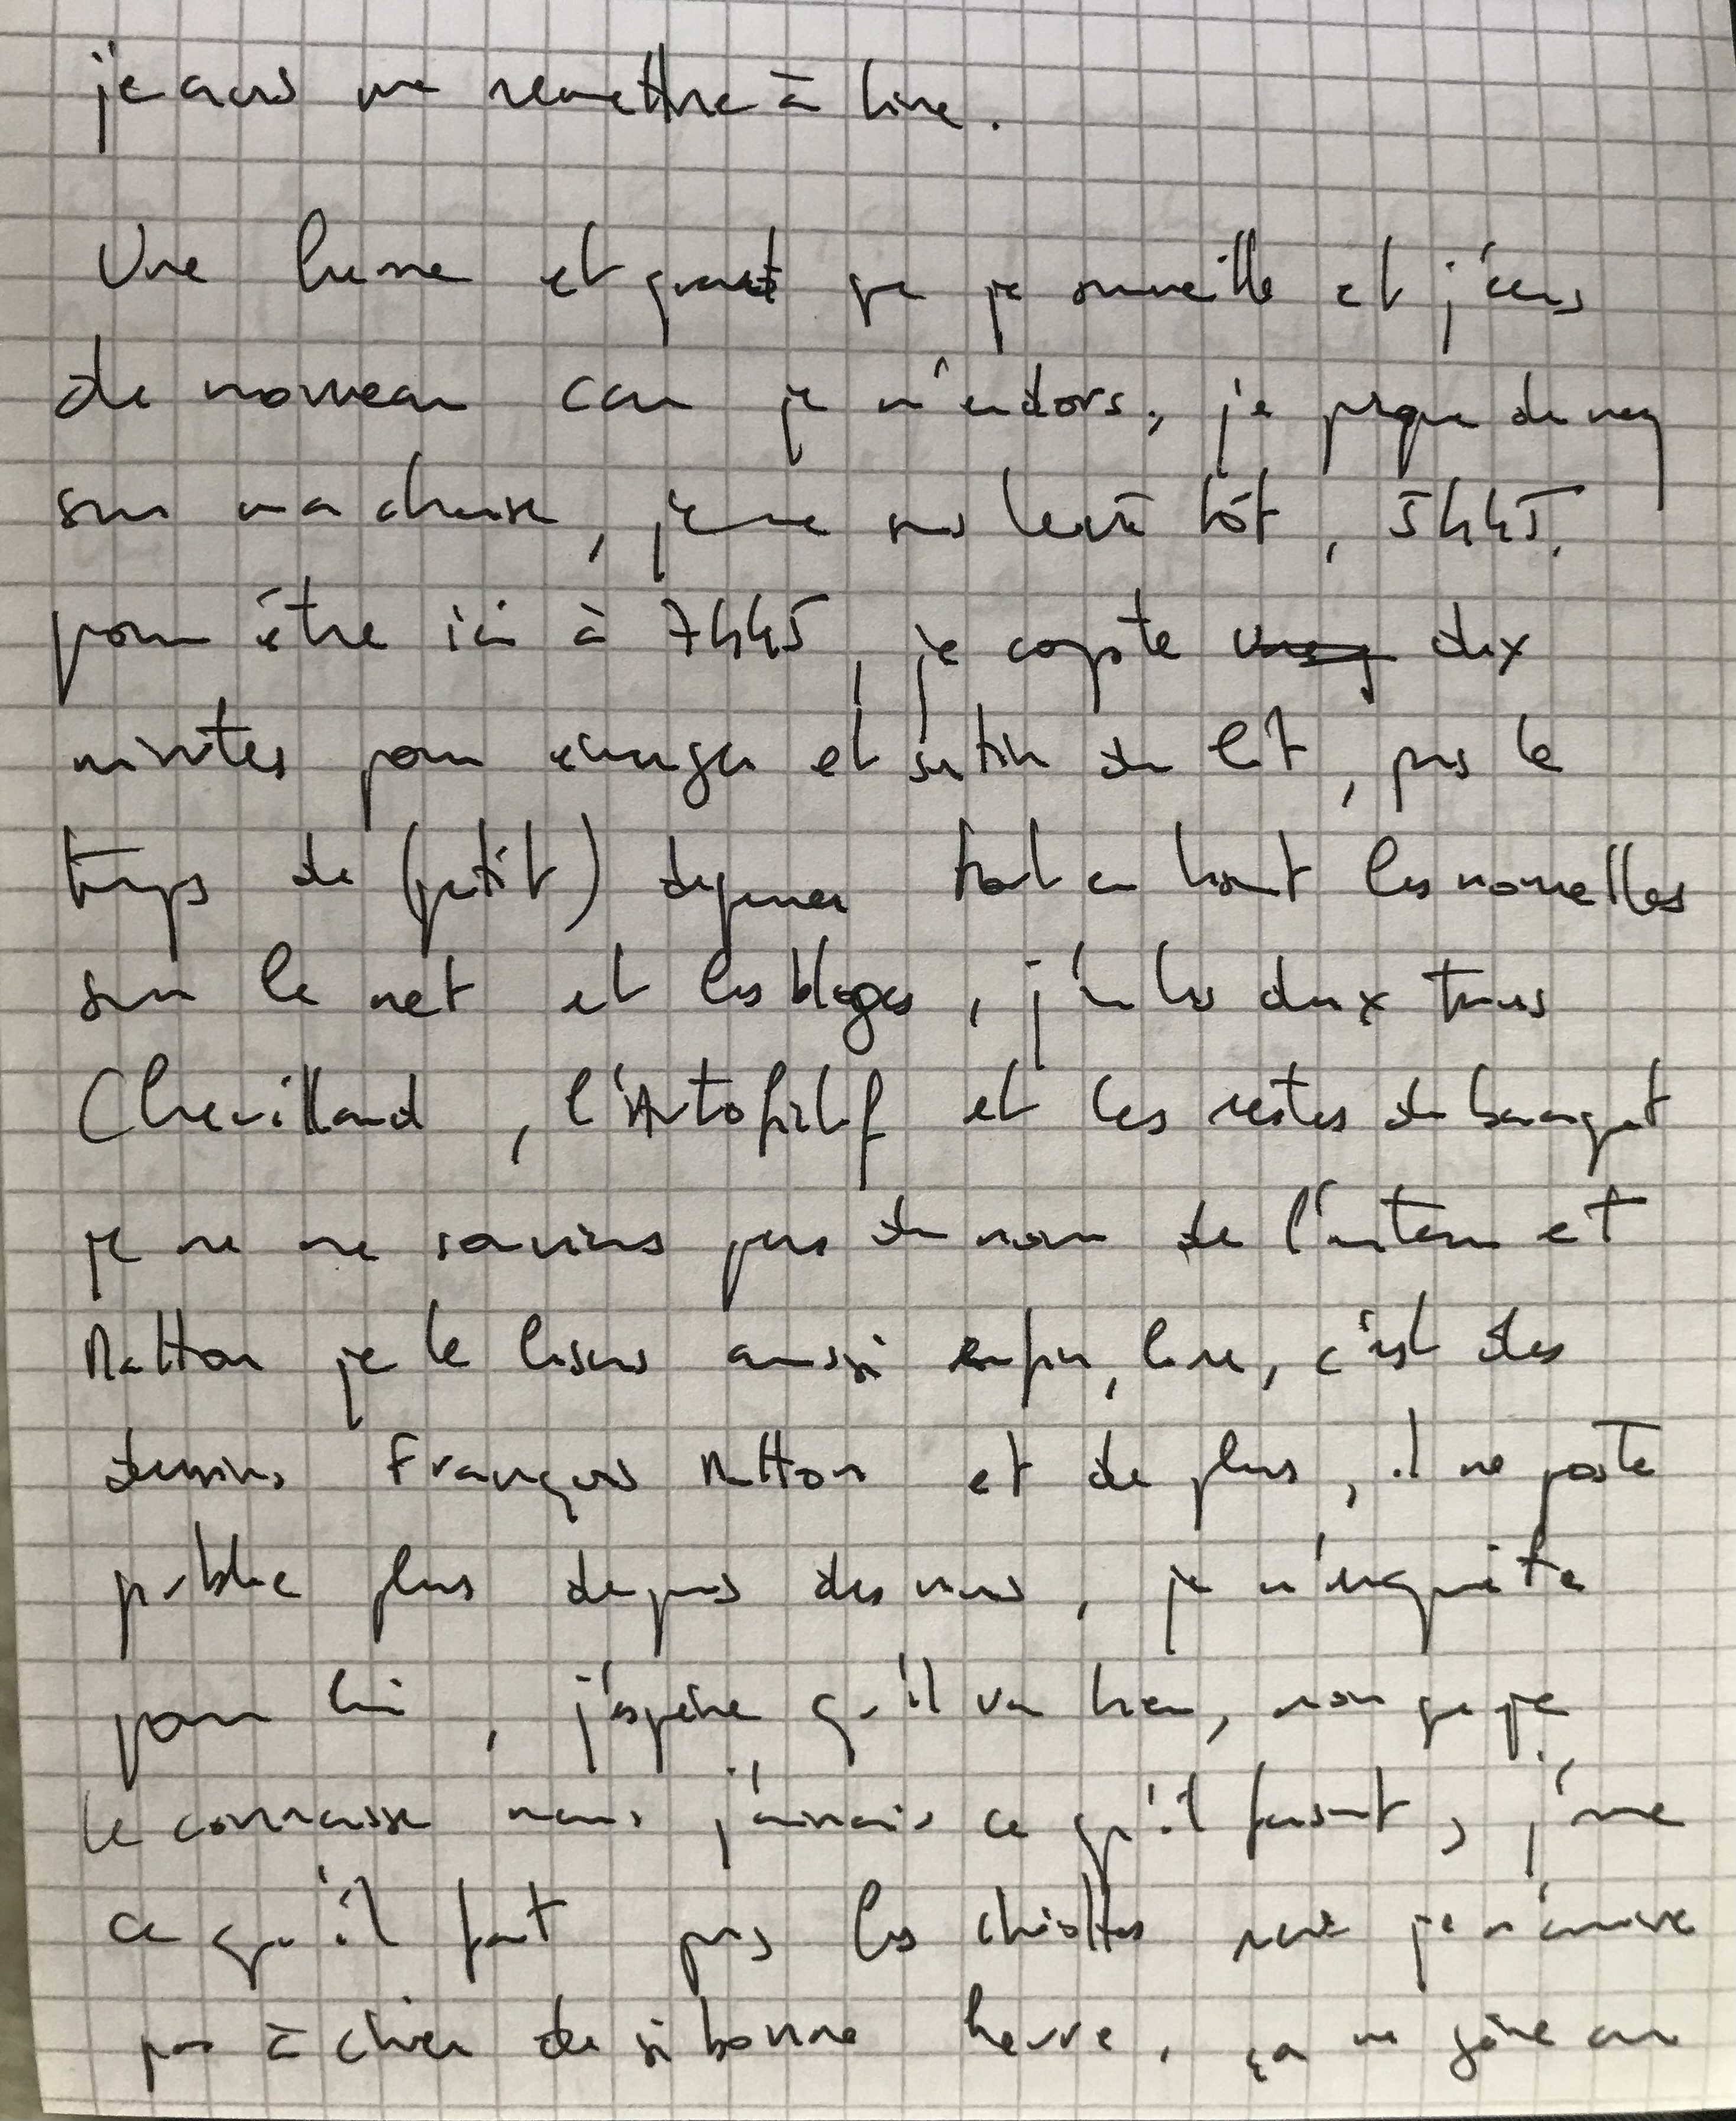 je vais me remettre à lire.
Une heure et quart que je surveille et j'écris
de nouveau car je m'endors, je pique du nez
sur ma chaise, je me suis levé tôt, 5h45,
pour être ici à 7h45, je compte dix
minutes pour émerger et sortir du lit, puis le
temps de (petit) déjeuner tout en lisant les nouvelles
sur le net et les blogs, j'en lis deux trois
Chevillard, l'Autofictif et les restes du banquet
je ne me souviens pas du nom de l'auteur et
Matton je le lisais aussi enfin, lire, c'est des
dessins François Matton et de plus, il ne poste
publie plus depuis des mois, je m'inquiète
pour lui, j'espère qu'il va bien, non que je
le connaisse mais j'aimais ce qu'il faisait, j'aime
ce qu'il fait puis les chiottes mais je n'arrive
pas à chier de si bonne heure, ça me gêne car